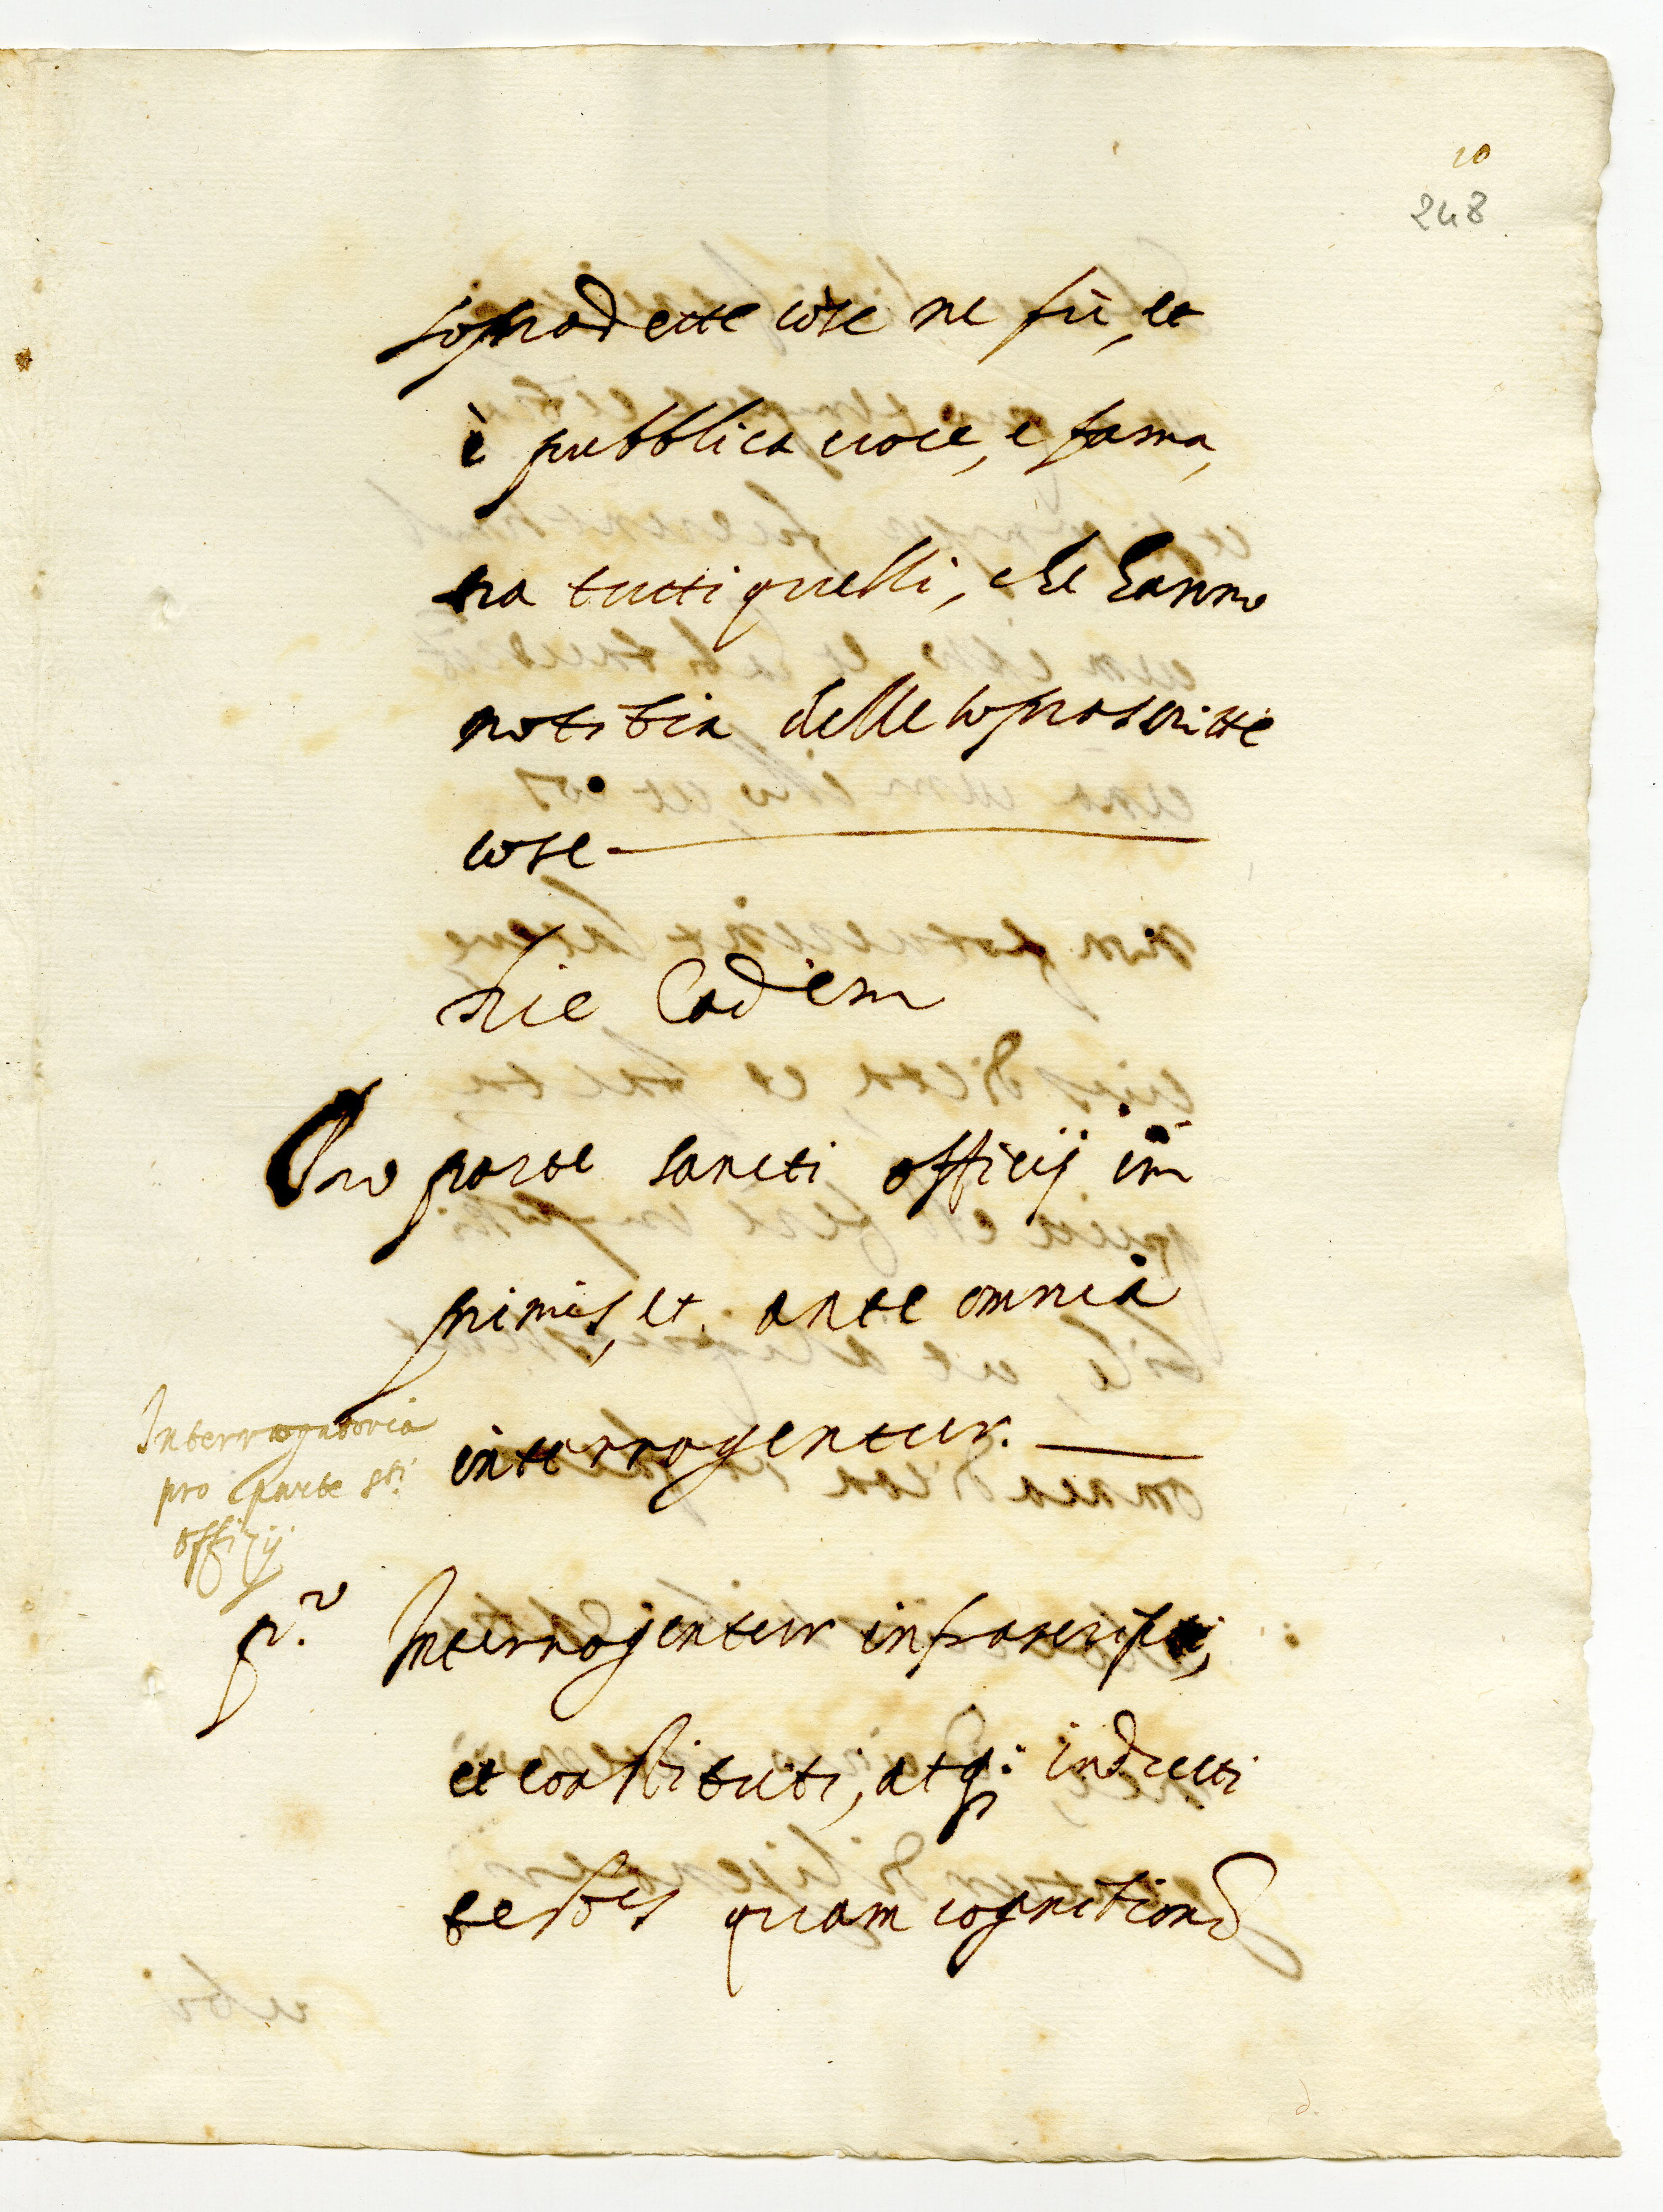 10
248
sopradette cose ne fù, et
è pubblica uoce, e fama,
tra tutti quelli, che hanno
notitia delle soprascritte
cose
Die Eadem
Pro parte sancti officij im
primis, et ante omnia
interrogentur.
Interrogatoria
pro parte sti.
offizij
p.o Interrogentur infrascripti,
et constituti, atq: inducti
testes quam cognitione